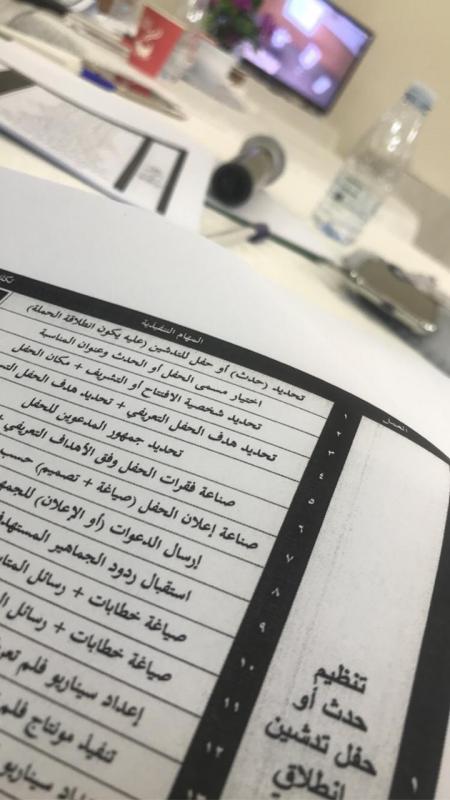 المهام التنفيذية
تحديد (حدث) أو حفل للتدشين (عليه يكون انطلاقة الحملة)
اختيار مسمى الحفل أو الحدث وعنوان المناسبة
تحديد شخصية الافتتاح أو التشريف + مكان الحفل
تحديد هدف الحفل التعريفي + تحديد هدف الحفل
تحديد جمهور المدعوين للحفل
صناعة فقرات الحفل وفق الأهداف التعريفي
صناعة إعلان الحفل (صياغة + تصميم) حسب
إرسال الدعوات (أو الإعلان)
استقبال ردود الجماهير
صياغة خطابات + رسائل
صياغة خطابات + رسائل
إعداد سيناريو فلم
تنفيذ مونتاج
سيناريو
١
٢
٣
٤
٥
٦
٧
٨
٩
١٠
١١
١٢
١٣
تنظيم
حدث أو
حفل تدشين
انطلاقي
١